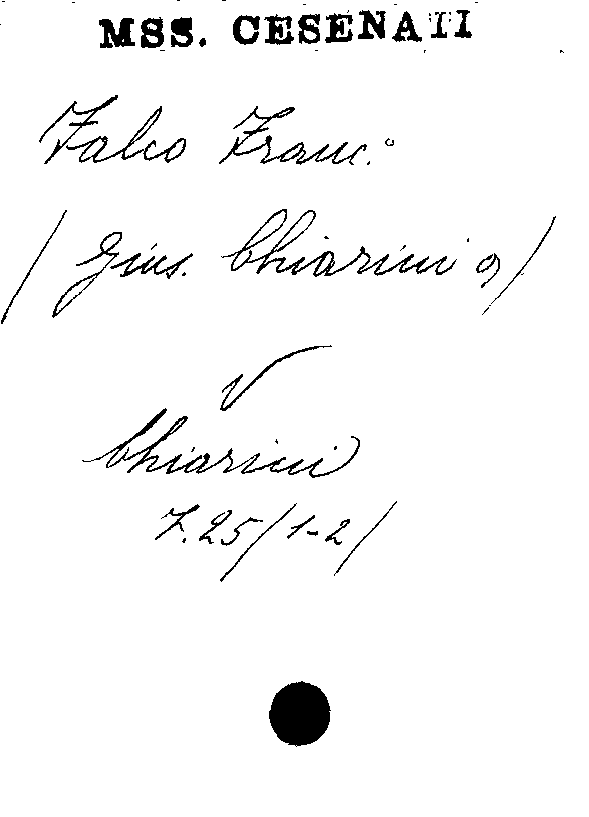 MSS. CESENATI
Falco Franc.°
/ Gius. Chiarini a/
V
Chiarini
F. 25/1-2/